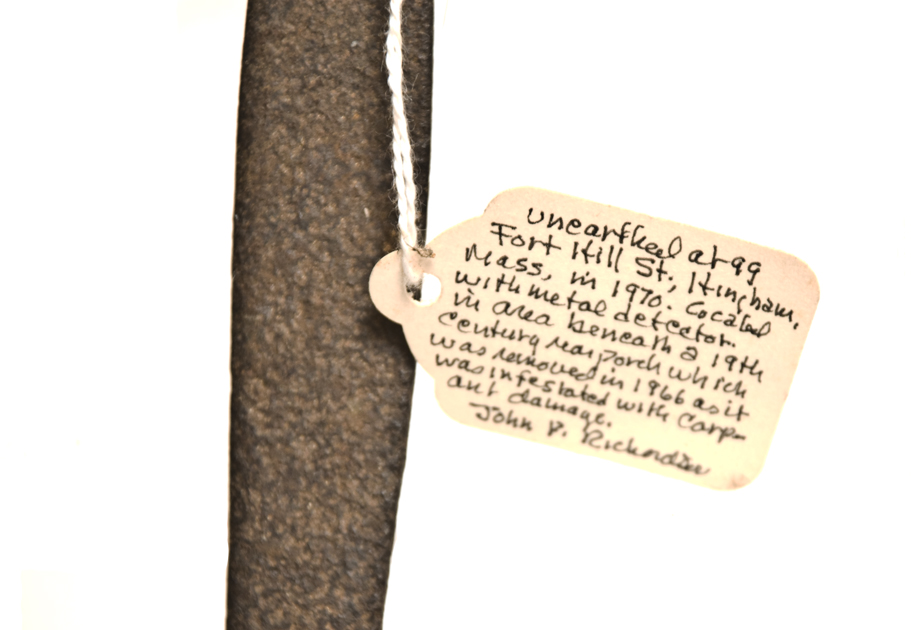 unearthed at 99
Fort Hill St., Hingham,
Mass, in 1970. Located
with metal detector
in area beneath a 19th
century rear porch which
was removed in 1966 as it
was infestated with Carp-
ant damage.
John P. Richardson